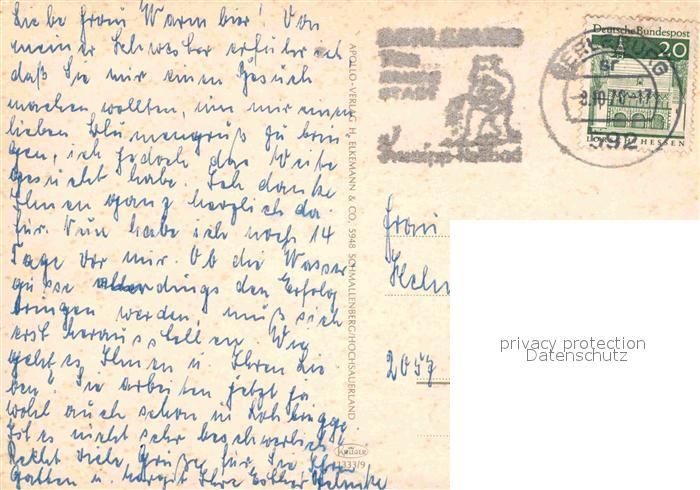 Liebe Frau Warm bier! Von
meiner Schwester erfuhr ich
daß Sie mir einen Besuch
machen wollten, um mir einen
lieben Blumengruß zu brin
gen, ich jedoch das Weite
gesucht habe. Ich danke
Ihnen ganz herzlich da
für. Nun habe ich noch 14
Tage vor mir. Ob die Wasser
güsse allerdings den Erfolg
bringen werden, muß sich
erst herausstellen. Wie
geht es Ihnen u. Ihren Lie
ben? Sie arbeiten jetzt ja
wohl auch schon in
Ist es nicht sehr beschwerlich?
Recht viele Grüße für Sie Ihren
Gatten u. Margit Ihre Esther
APOLLO-VERLAG H. ELKEMANN & CO, 5948 SCHMALLENBERG/HOCHSAUERLAND
KRÜGER
1333/9
Kneipp-Heilbad
Deutsche Bundespost
20
BERLEBURG
9.10.70-17
592
HESSEN
Frau
2057
privacy protection
Datenschutz